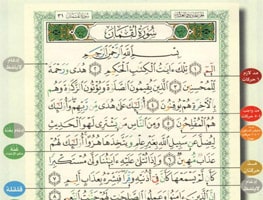 سُورَةُ لُقْمَانَ
بِسْمِ ٱللَّهِ ٱلرَّحْمَٰنِ ٱلرَّحِيمِ
الٓمٓ ١ تِلْكَ ءَايَٰتُ ٱلْكِتَٰبِ ٱلْحَكِيمِ ٢ هُدًى وَرَحْمَةً
لِّلْمُحْسِنِينَ ٣ ٱلَّذِينَ يُقِيمُونَ ٱلصَّلَوٰةَ وَيُؤْتُونَ ٱلزَّكَوٰةَ وَهُم
بِٱلْءَاخِرَةِ هُمْ يُوقِنُونَ ٤ أُو۟لَٰٓئِكَ عَلَىٰ هُدًى مِّن رَّبِّهِمْ وَأُو۟لَٰٓئِكَ
هُمُ ٱلْمُفْلِحُونَ ٥ وَمِنَ ٱلنَّاسِ مَن يَشْتَرِى لَهْوَ ٱلْحَدِيثِ
لِيُضِلَّ عَن سَبِيلِ ٱللَّهِ بِغَيْرِ عِلْمٍ وَيَتَّخِذَهَا هُزُوًا أُو۟لَٰٓئِكَ لَهُمْ
عَذَابٌ مُّهِينٌ ٦ وَإِذَا تُتْلَىٰ عَلَيْهِ ءَايَٰتُنَا وَلَّىٰ مُسْتَكْبِرًا
كَأَن لَّمْ يَسْمَعْهَا كَأَنَّ فِىٓ أُذُنَيْهِ وَقْرًا فَبَشِّرْهُ بِعَذَابٍ أَلِيمٍ ٧
إِنَّ ٱلَّذِينَ ءَامَنُوا۟ وَعَمِلُوا۟ ٱلصَّٰلِحَٰتِ لَهُمْ جَنَّٰتُ ٱلنَّعِيمِ
قلقلة